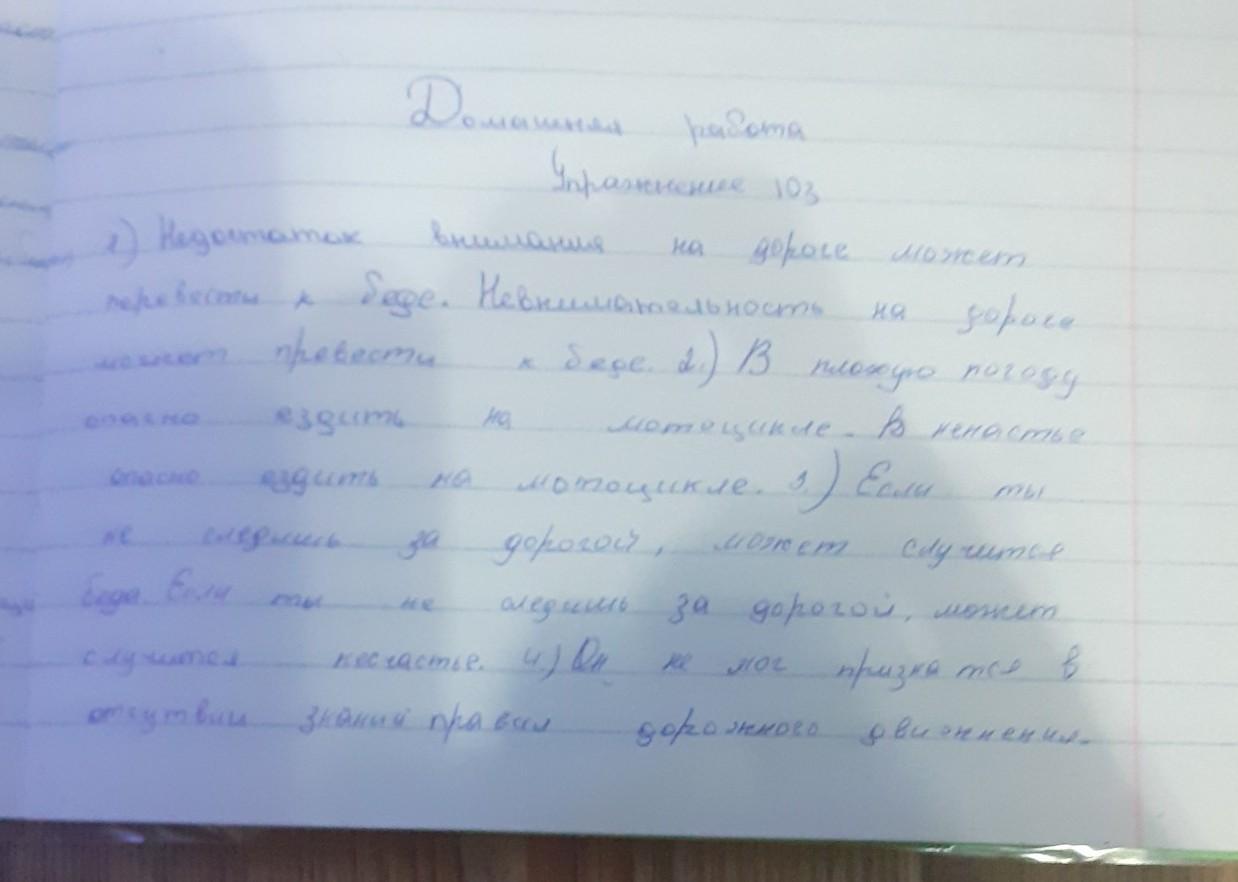 Домашняя работа
Упражнение 103
1) Недостаток внимания на дороге может
перевести к беде. Невнимательность на дороге
может превести к беде. 2.) В плохую погоду
опасно ездить на мотоцикле. В ненастье
опасно ездить на мотоцикле. 3.) Если ты
не следишь за дорогой, может случится
беда. Если ты не следишь за дорогой, может
случится несчастье. 4.) Он не мог признатся в
отсутвии знаний правил дорожного движнения.